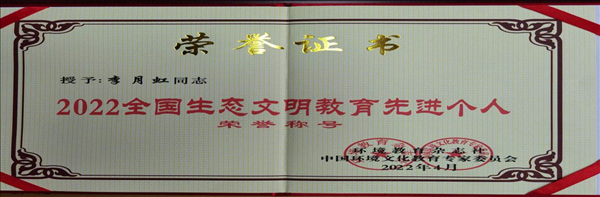 荣誉证书
授予:李月虹同志
2022全国生态文明教育先进个人
荣誉称号
环境教育杂志社
中国环境文化教育专家委员会
2022年4月